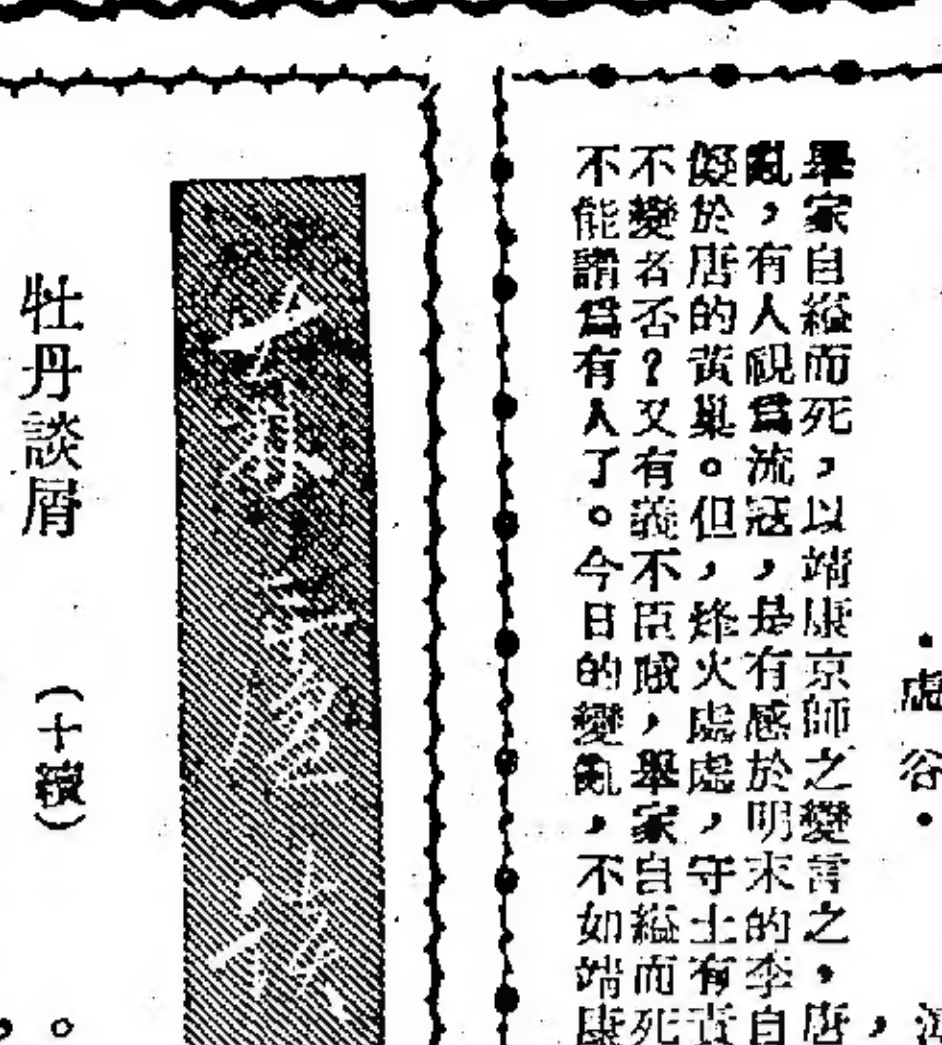 ・虛谷・
舉家自縊而死，以端康京師之變言之。唐
亂，有人視爲流寇，是有感於明末的李自
儗於唐的黃巢。但，烽火處處，守土有責
不變者否？又有義不臣賊，舉家自縊而死
不能謂爲有人了。今日的變亂，不如端康
牡丹談屑　（十續）